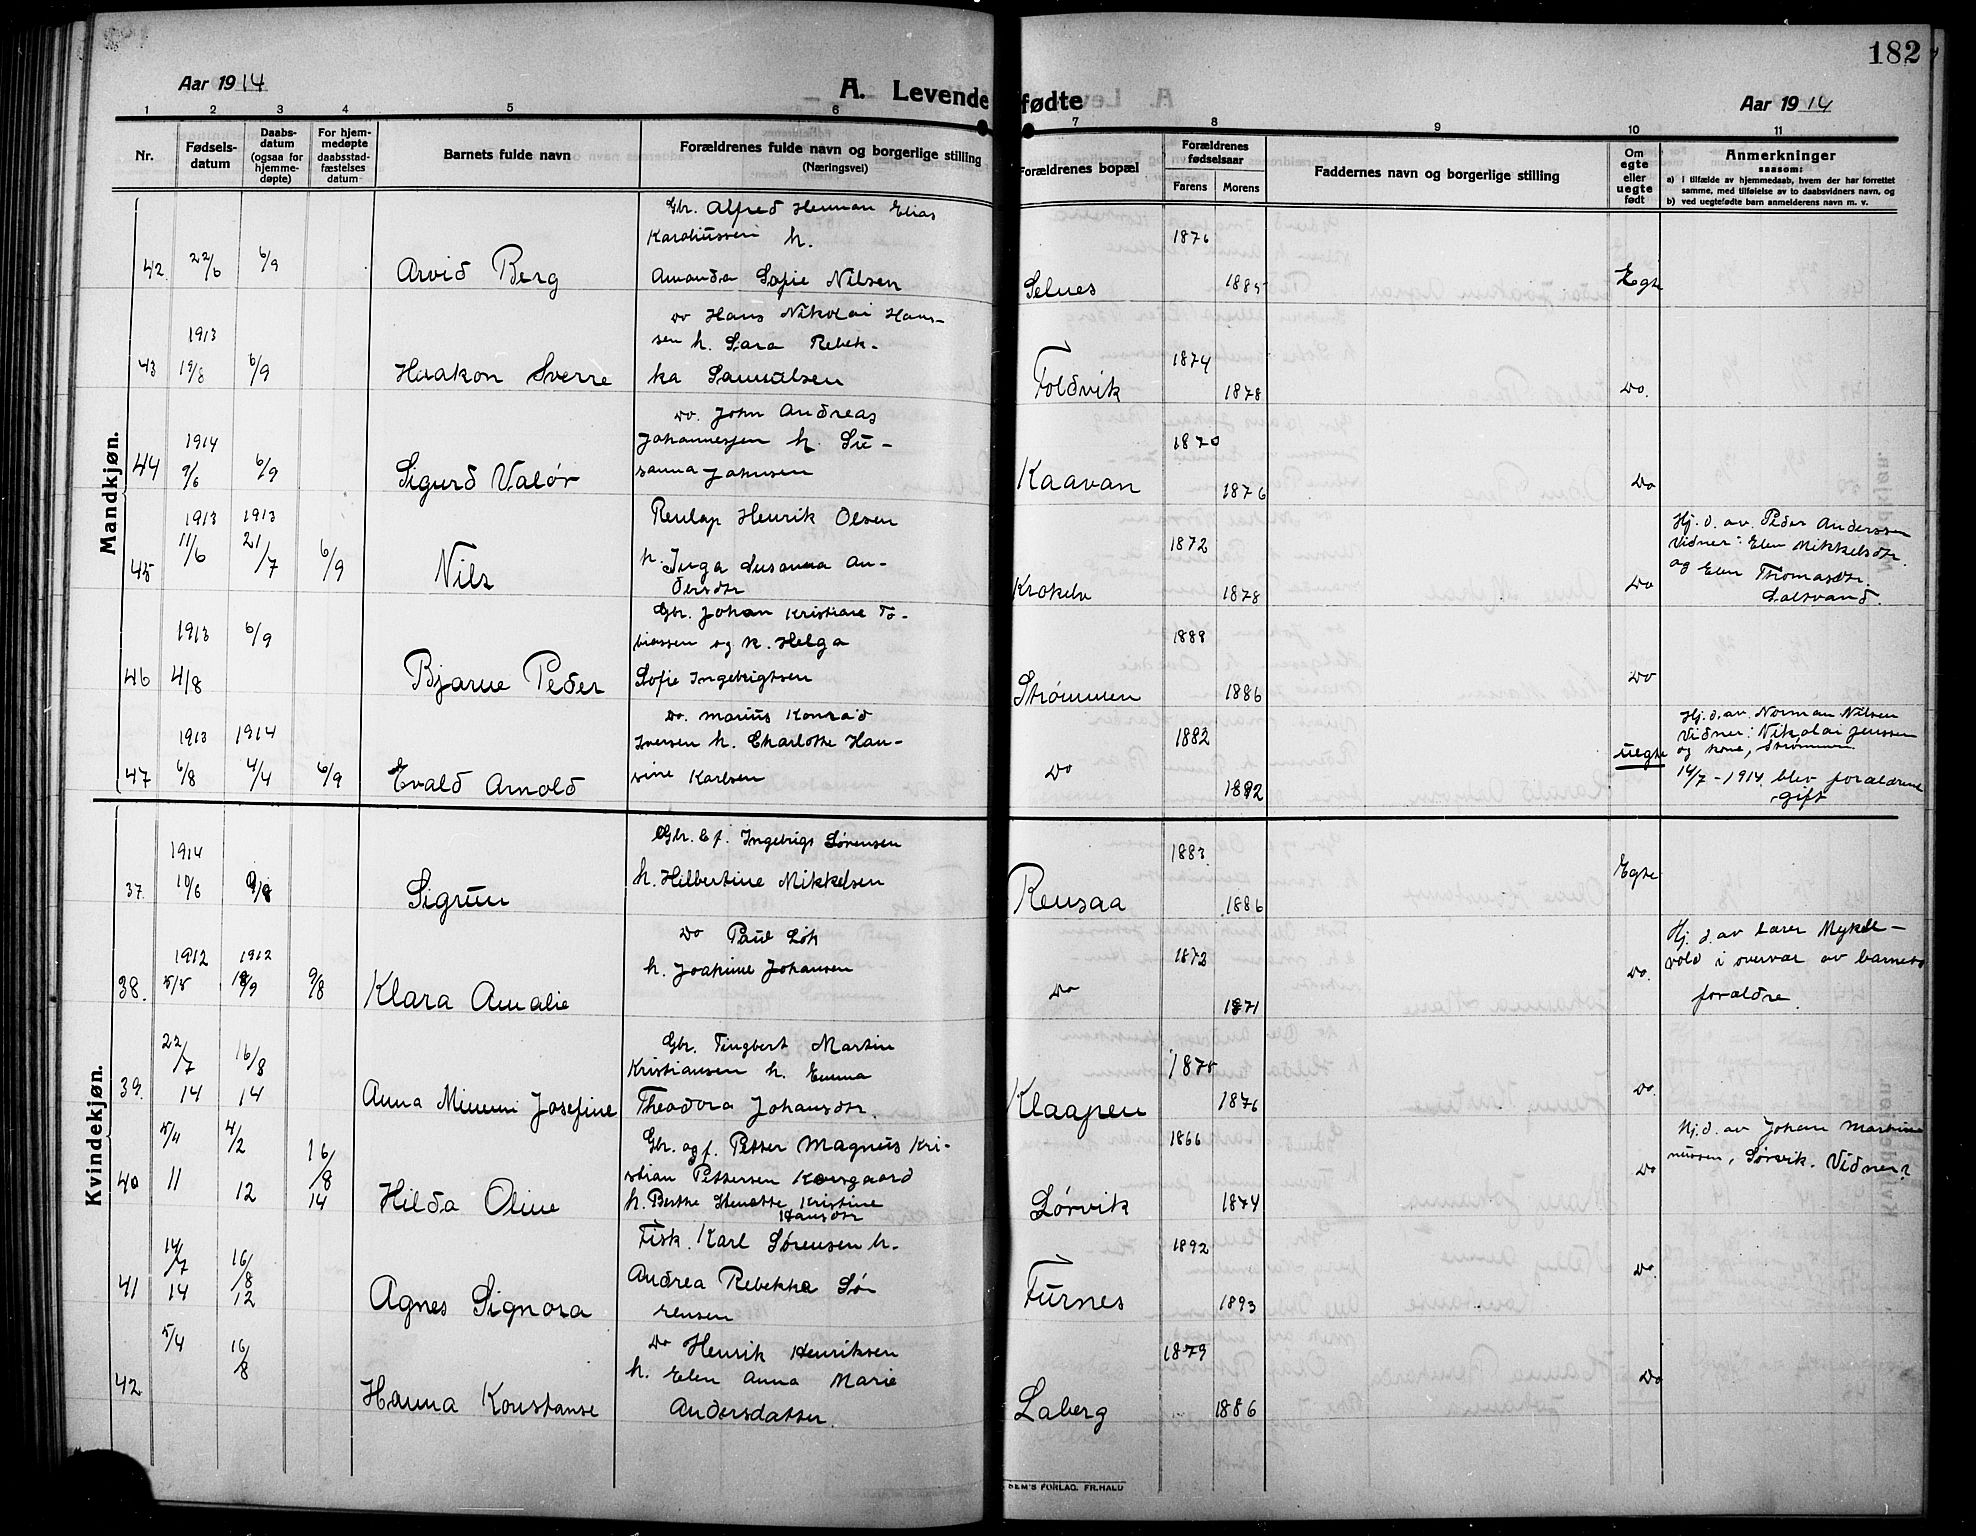 182
Aar 1914
A. Levendefødte
Aar 1914
1 2 3 4 5 6 7 8 9 10 11
Nr.
Fødsels-
datum
Daabs-
datum
(ogsaa for
hjemme-
døpte)
For hjem-
medøpte
daabsstad-
fæstelses
datum
Barnets fulde navn
Forældrenes fulde navn og borgerlige stilling
(Næringsvei)
Forældrenes bopæl
Forældrenes
fødselsaar
Farens Morens
Faddernes navn og borgerlige stilling
Om
egte
eller
uegte
født
Anmerkninger
saasom:
a) i tilfælde av hjemmedaab, hvem der har forrettet
samme, med tilføielse av to daabsvidners navn, og
b) ved uegtefødte barn anmelderens navn m. v.
Mandkjøn.
Gbr. Alfred Herman Elias
h. 1876
42. 22/6 6/9 Arvid Berg Amanda Sofie Nilsen Selnes 1885 Egte
Do Hans Nikolai Han-
1913 sen h. Sara Rebek- 1874
43 19/8 6/9 Haakon Sverre ka Samuelsen Foldvik 1878 Do.
Do. John Andreas
1914 Johannessen h. Su- 1870
44 9/6 6/9 Sigurd Valór sanna Johnsen Kaavan 1876 Do
1913 1913 Renlap Henrik Olsen 1872 Hj. d. av. Peder Anderssen
11/6 21/7 6/9 h. Inga Susanna An- Vidner: Elen Mikkelsdtr.
45 Nils dersdtr Krokelv 1878 Do og Elen Thomasdtr.
Salsvand.
Gbr. Johan Kristiare To-
1913 6/9 biassen og h. Helga 1888
46 4/8 Bjarne Peder Sofie Ingebrigtsen Strømmen 1886 Do
Do. Marius Konrad Hj. d. av. Norman Nilsen
1913 1914 Iversen h. Charlotte Han- 1882 Vidner: Nikolai Jenssen
uegte og kone, Strømmen
47 6/8 4/4 6/9 Evald Arnold sine Karlsen Do 1892 14/7 - 1914 blev forældrene
gift
Kvindekjøn.
1914 Gbr. Ef. Ingebrigs Sørensen 1883
10/6 9/8 h. Hilbertine Mikkelsen Egte
37. Sigrun Rensaa 1886
Do Paul Løk Hj. d. av Lærer Mykle-
1912 1912 h. Joakime Johansen 1872 vold i overvær av barnets
38. 5/5 18/9 9/8 Klara Amalie Do 1871 Do. forældre.
22/7 16/8 Gbr. Tingbert Martin
Kristiansen h. Emma 1875
39. 14 14 Anna Minmi Josefine Theodora Johansdtr. Klaapen 1876 Do.
5/4 4/2 16/8 Gbr. og f. Petter Magnus Kri- 1866 Hj. d. av Johan Martinu
40 11 12 14 stian Pettersen Korsgaard nussen, Sørvik. Vidner?
Hilda Oline h. Berthe Henette Kristine Sørvik 1874 Do
Hansdtr
14/7 16/8 Fisk. Karl Sørensen h. 1892
41 14 12 Agnes Signora Andrea Rebekka Sø- Furnes 1893 Do.
rensen
5/4 16/8 Do Henrik Henriksen 1879
42 h. Elen Anna Marie Do
Hanna Konstanse Andersdatter. Laberg 1886
SEM'S FORLAG. FR.HALD